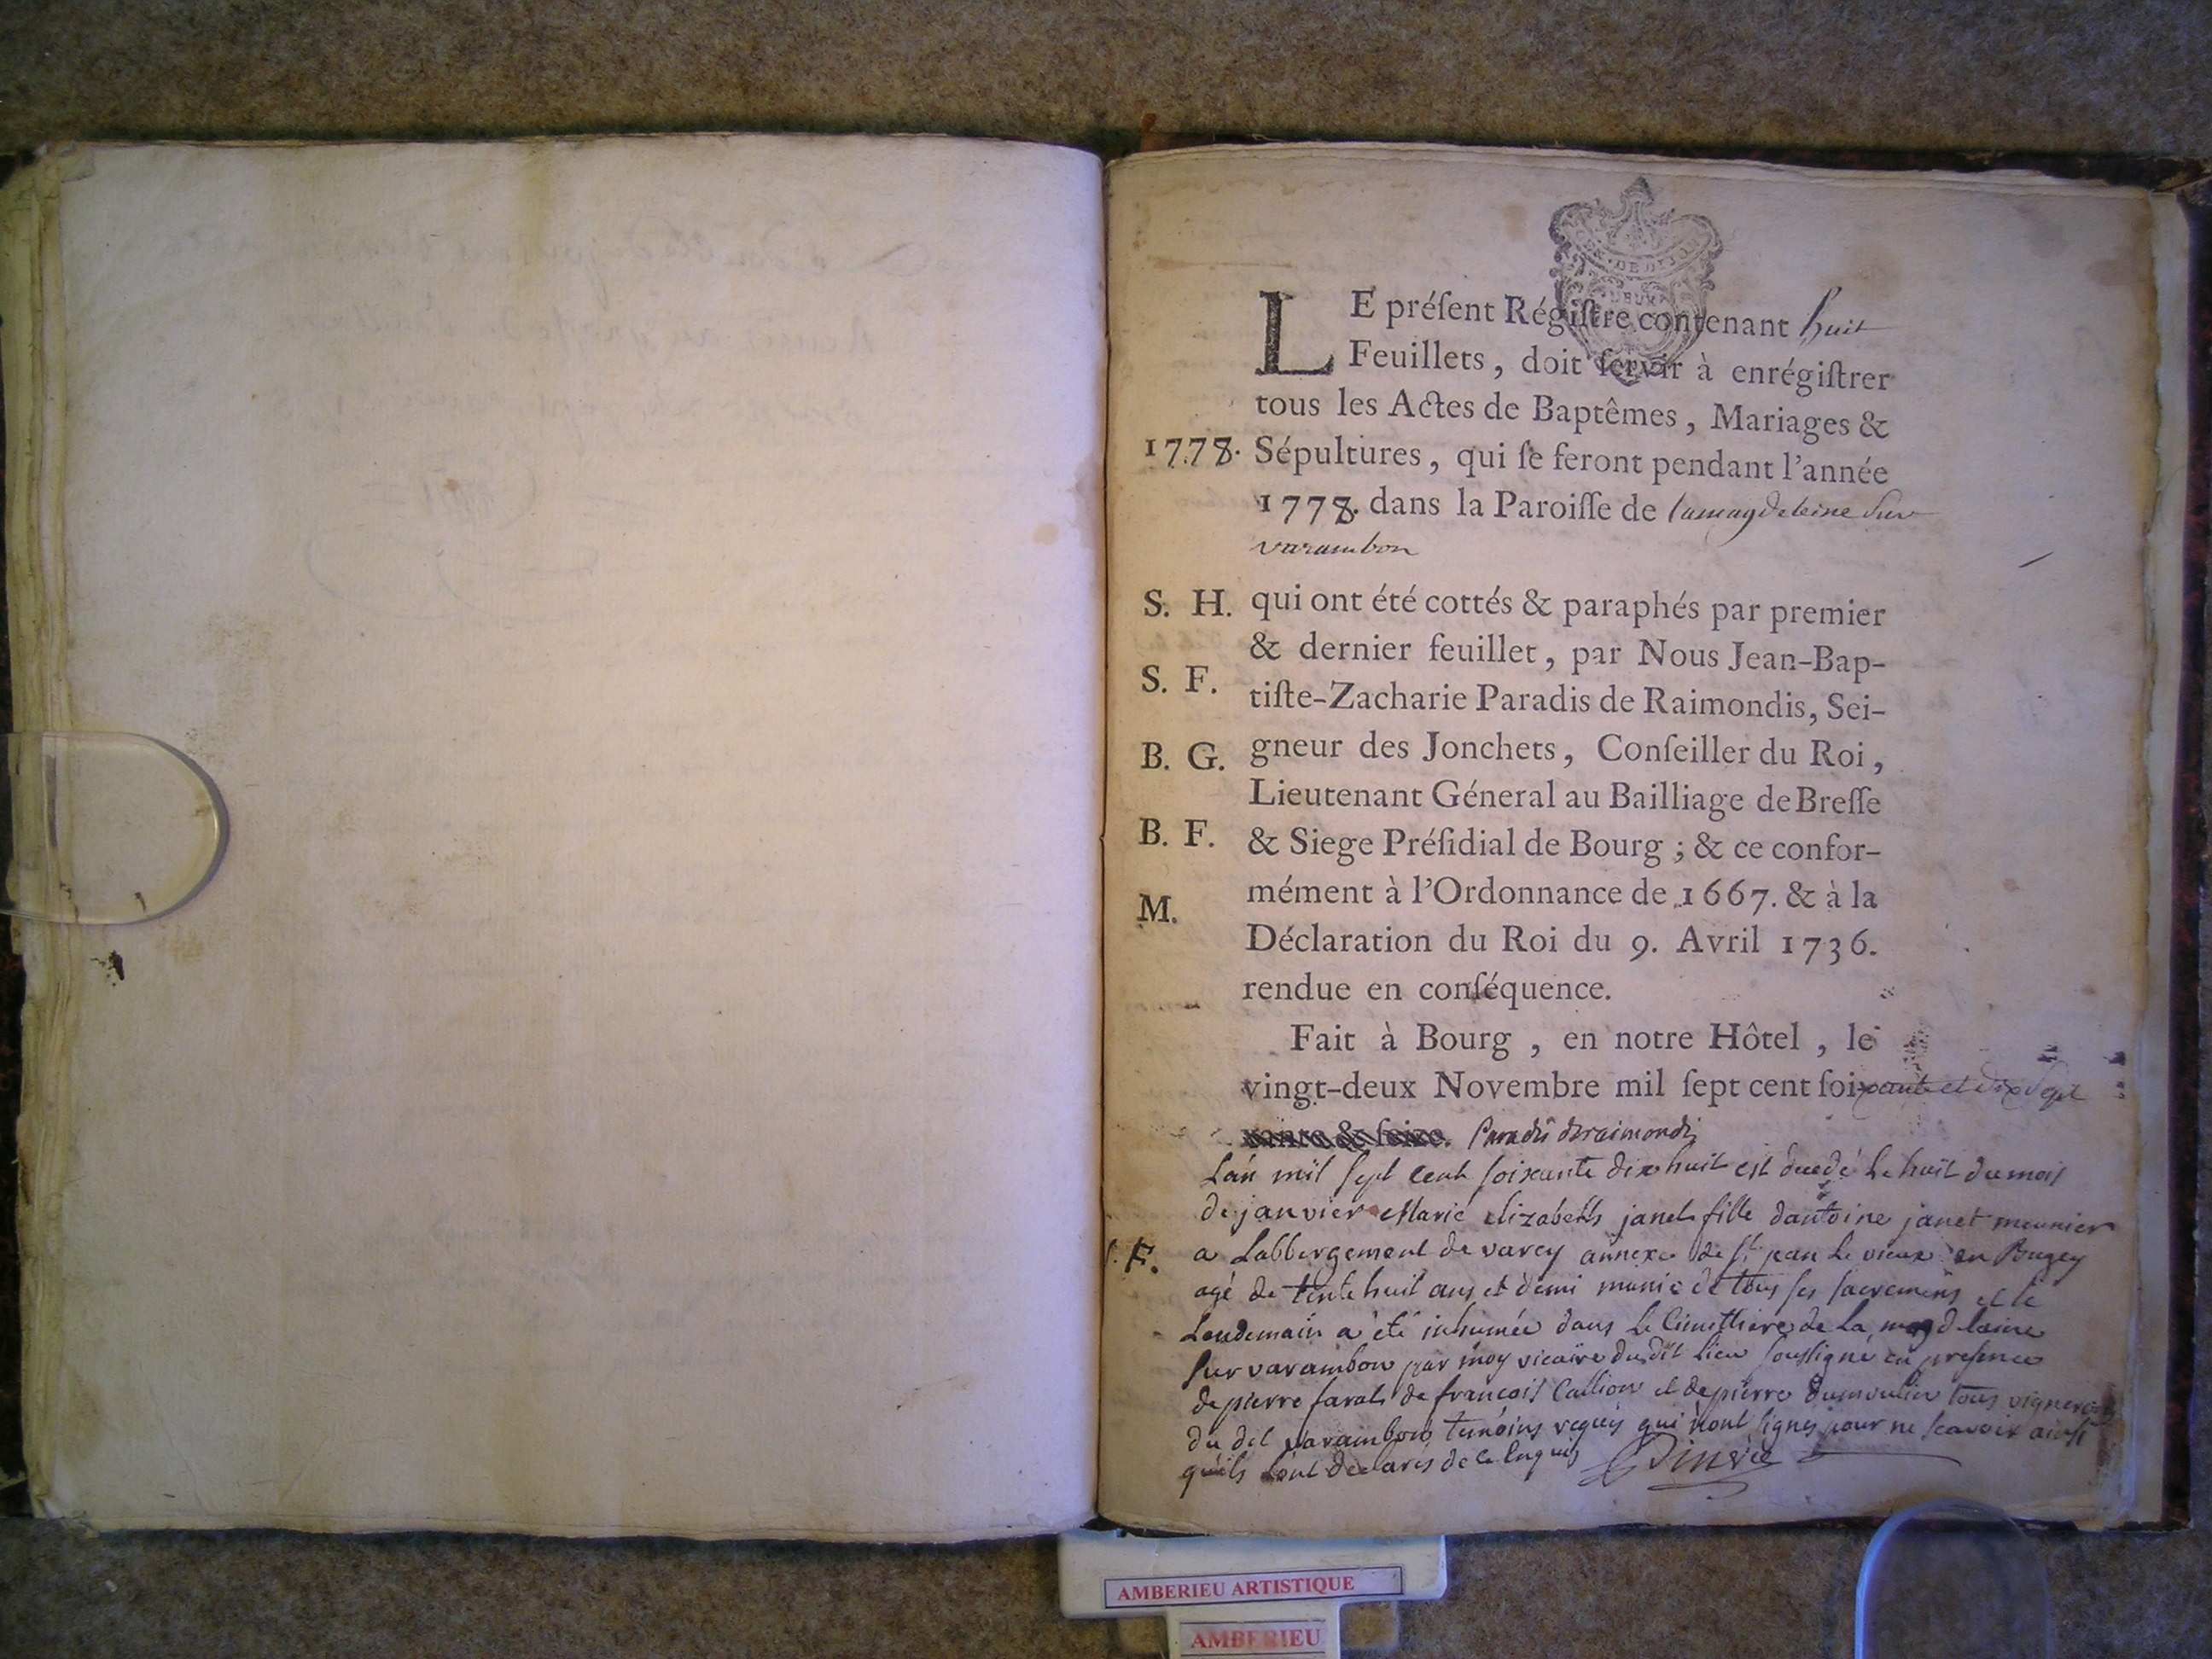 LE préſent Régiſtre contenant huit
Feuillets, doit ſervir à enrégiſtrer
tous les Actes de Baptêmes, Mariages &
1778. Sépultures, qui ſe feront pendant l'année
1778. dans la Paroiſſe de lamagdeleine Sur
varambon
S. H. qui ont été cottés & paraphés par premier
& dernier feuillet, par Nous Jean-Bap-
S. F. tiſte-Zacharie Paradis de Raimondis, Sei-
B. G. gneur des Jonchets, Conſeiller du Roi,
Lieutenant Géneral au Bailliage de Breſſe
B. F. & Siege Préſidial de Bourg ; & ce confor-
mément à l'Ordonnance de 1667. & à la
M.
Déclaration du Roi du 9. Avril 1736.
rendue en conſéquence.
Fait à Bourg, en notre Hôtel, le
vingt-deux Novembre mil ſept cent ſoixante et dix Sept
xante & ſeize. Paradis deraimondis
Lán mil sept cent soixante dix huit est decedé le huit du mois
de janvier Marie elizabeth janet fille dantoine janet meunier
S. F. a Labbergement de varey annexe de St jean le vieux en Bugey
agé de tente huit ans et demi munie de tous ses sacremens et le
Lendemain a été inhumée dans le Cimethiere de La magdelaine
sur varambon par moy vicaire dudit lieu soussigné en presence
de pierre farat de francois Caillion et de pierre dumoulin tous vignerons
du dit varambon temoins requis qui nont signes pour ne scavoir ainsi
quils lont declarés de ce Enquis
AMBERIEU ARTISTIQUE
AMBERIEU